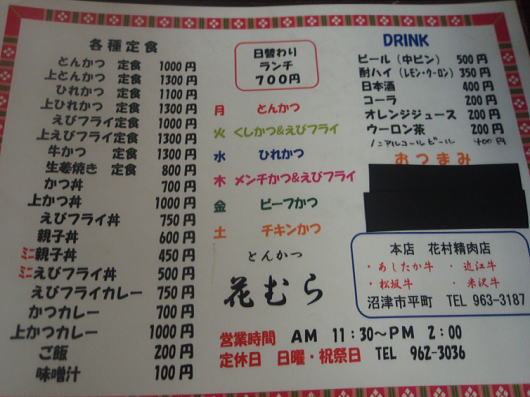 各種定食
とんかつ 定食 1000円
上とんかつ 定食 1300円
ひれかつ 定食 1100円
上ひれかつ 定食 1300円
えびフライ 定食 1000円
上えびフライ 定食 1300円
牛かつ 定食 1300円
生姜焼き 定食 800円
かつ丼 700円
上かつ丼 1000円
えびフライ丼 750円
親子丼 600円
ミニ 親子丼 450円
ミニ えびフライ丼 500円
えびフライカレー 750円
かつカレー 700円
上かつカレー 1000円
ご飯 200円
味噌汁 100円
日替わり
ランチ
700円
月 とんかつ
火 くしかつ&えびフライ
水 ひれかつ
木 メンチかつ&えびフライ
金 ビーフかつ
土 チキンかつ
とんかつ
花むら
DRINK
ビール(中ビン) 500円
酎ハイ(レモン・ウーロン) 350円
日本酒 400円
コーラ 200円
オレンジジュース 200円
ウーロン茶 200円
ノンアルコールビール 400円
おつまみ
本店 花村精肉店
・あしたか牛 ・近江牛
・松坂牛 ・米沢牛
沼津市平町 TEL 963-3187
営業時間 AM 11:30~PM 2:00
定休日 日曜・祝祭日 TEL 962-3036